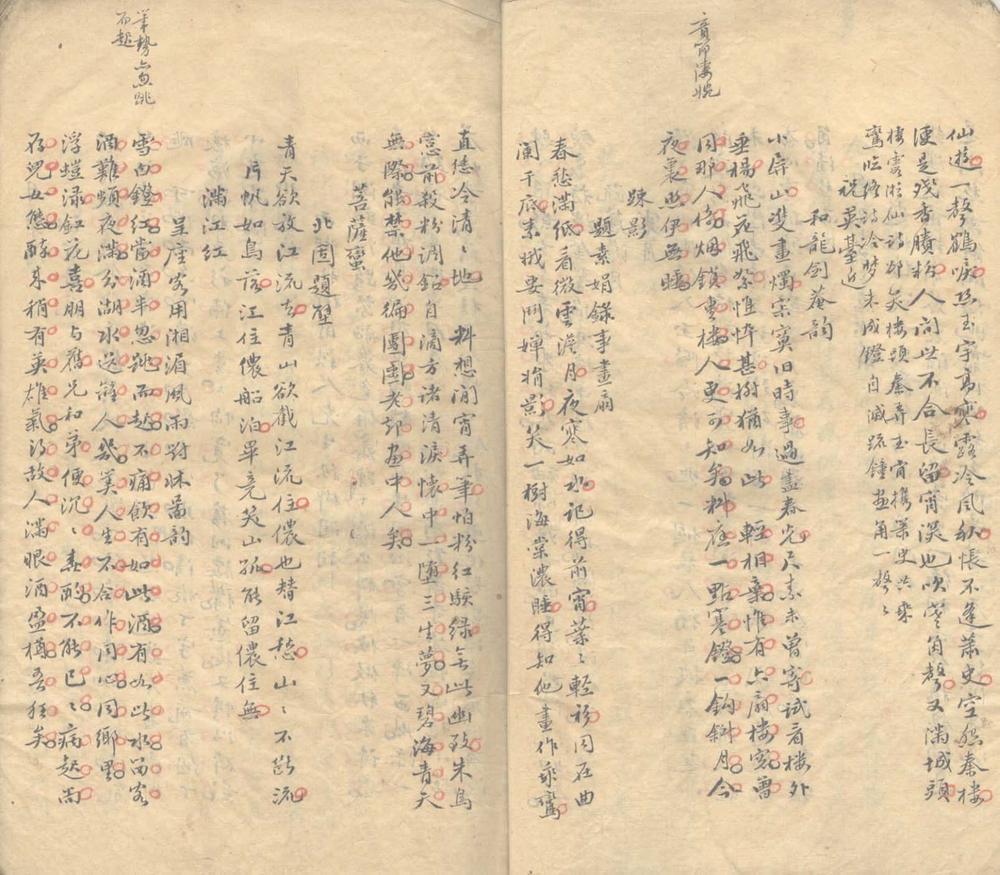 音節淒惋
仙遊一聲鶴唳珠玉宇高寒露冷風秋悵不逢蕭史空怨秦樓
便是殘香賸粉人間此不合長留宵深也吹凄角聲又滿城頭
樓露脂仙詩却笑樓頭秦弄玉宵攜簫史共乘
鸞臨終詩冷夢未成鐙自滅疏鐘畫角一聲〻
祝英基近
和龍劍菴韻
小屏山雙畫燭寂寞旧時事過盡春光只未曾寄試看樓外
垂楊飛花飛絮惟悴甚樹猶如此 輕相棄惟有六扇樓窗曾
同那人倚烟鎖重樓人更可知矣料應一點寒鐙一鈎斜月今
夜裏照伊無睡
疎影
題素娟錄事畫扇
春愁滿紙看微雲澹月夜寒如水記得前宵葉〻輕衫同在曲
闌干底素娥要鬥嬋娟影笑一樹海棠濃睡得知他畫作乘鸞
直恁冷清〻地 料想閒宵弄筆怕粉紅駭綠無此幽致朱鳥
窗前殺粉調鉛自滴方諸清淚懷中一墮三生夢又碧海青天
無際能禁他幾徧團圞老却畫中人矣
菩薩蠻
北固題壁
青天欲放江流去青山欲截江流住儂也替江愁山〻不斷流
片帆如鳥落江住儂船泊畢竟笑山孤能留儂住無
滿江紅
呈座客用湘湄風雨對牀圖韻
筆勢亦魚跳
而起
雪白鐙紅當酒半忽跳而起不痛飲有如此酒有如此水留客
酒難頭夜滿分湖水送諸人幾算人生不合作同心同鄉里
浮螘渌釭花喜朋与舊兄和弟便沉〻春酌不能已〻病起尚
存兒女態醉來稍有英雄氣約故人滿眼酒盈樽吾狂矣